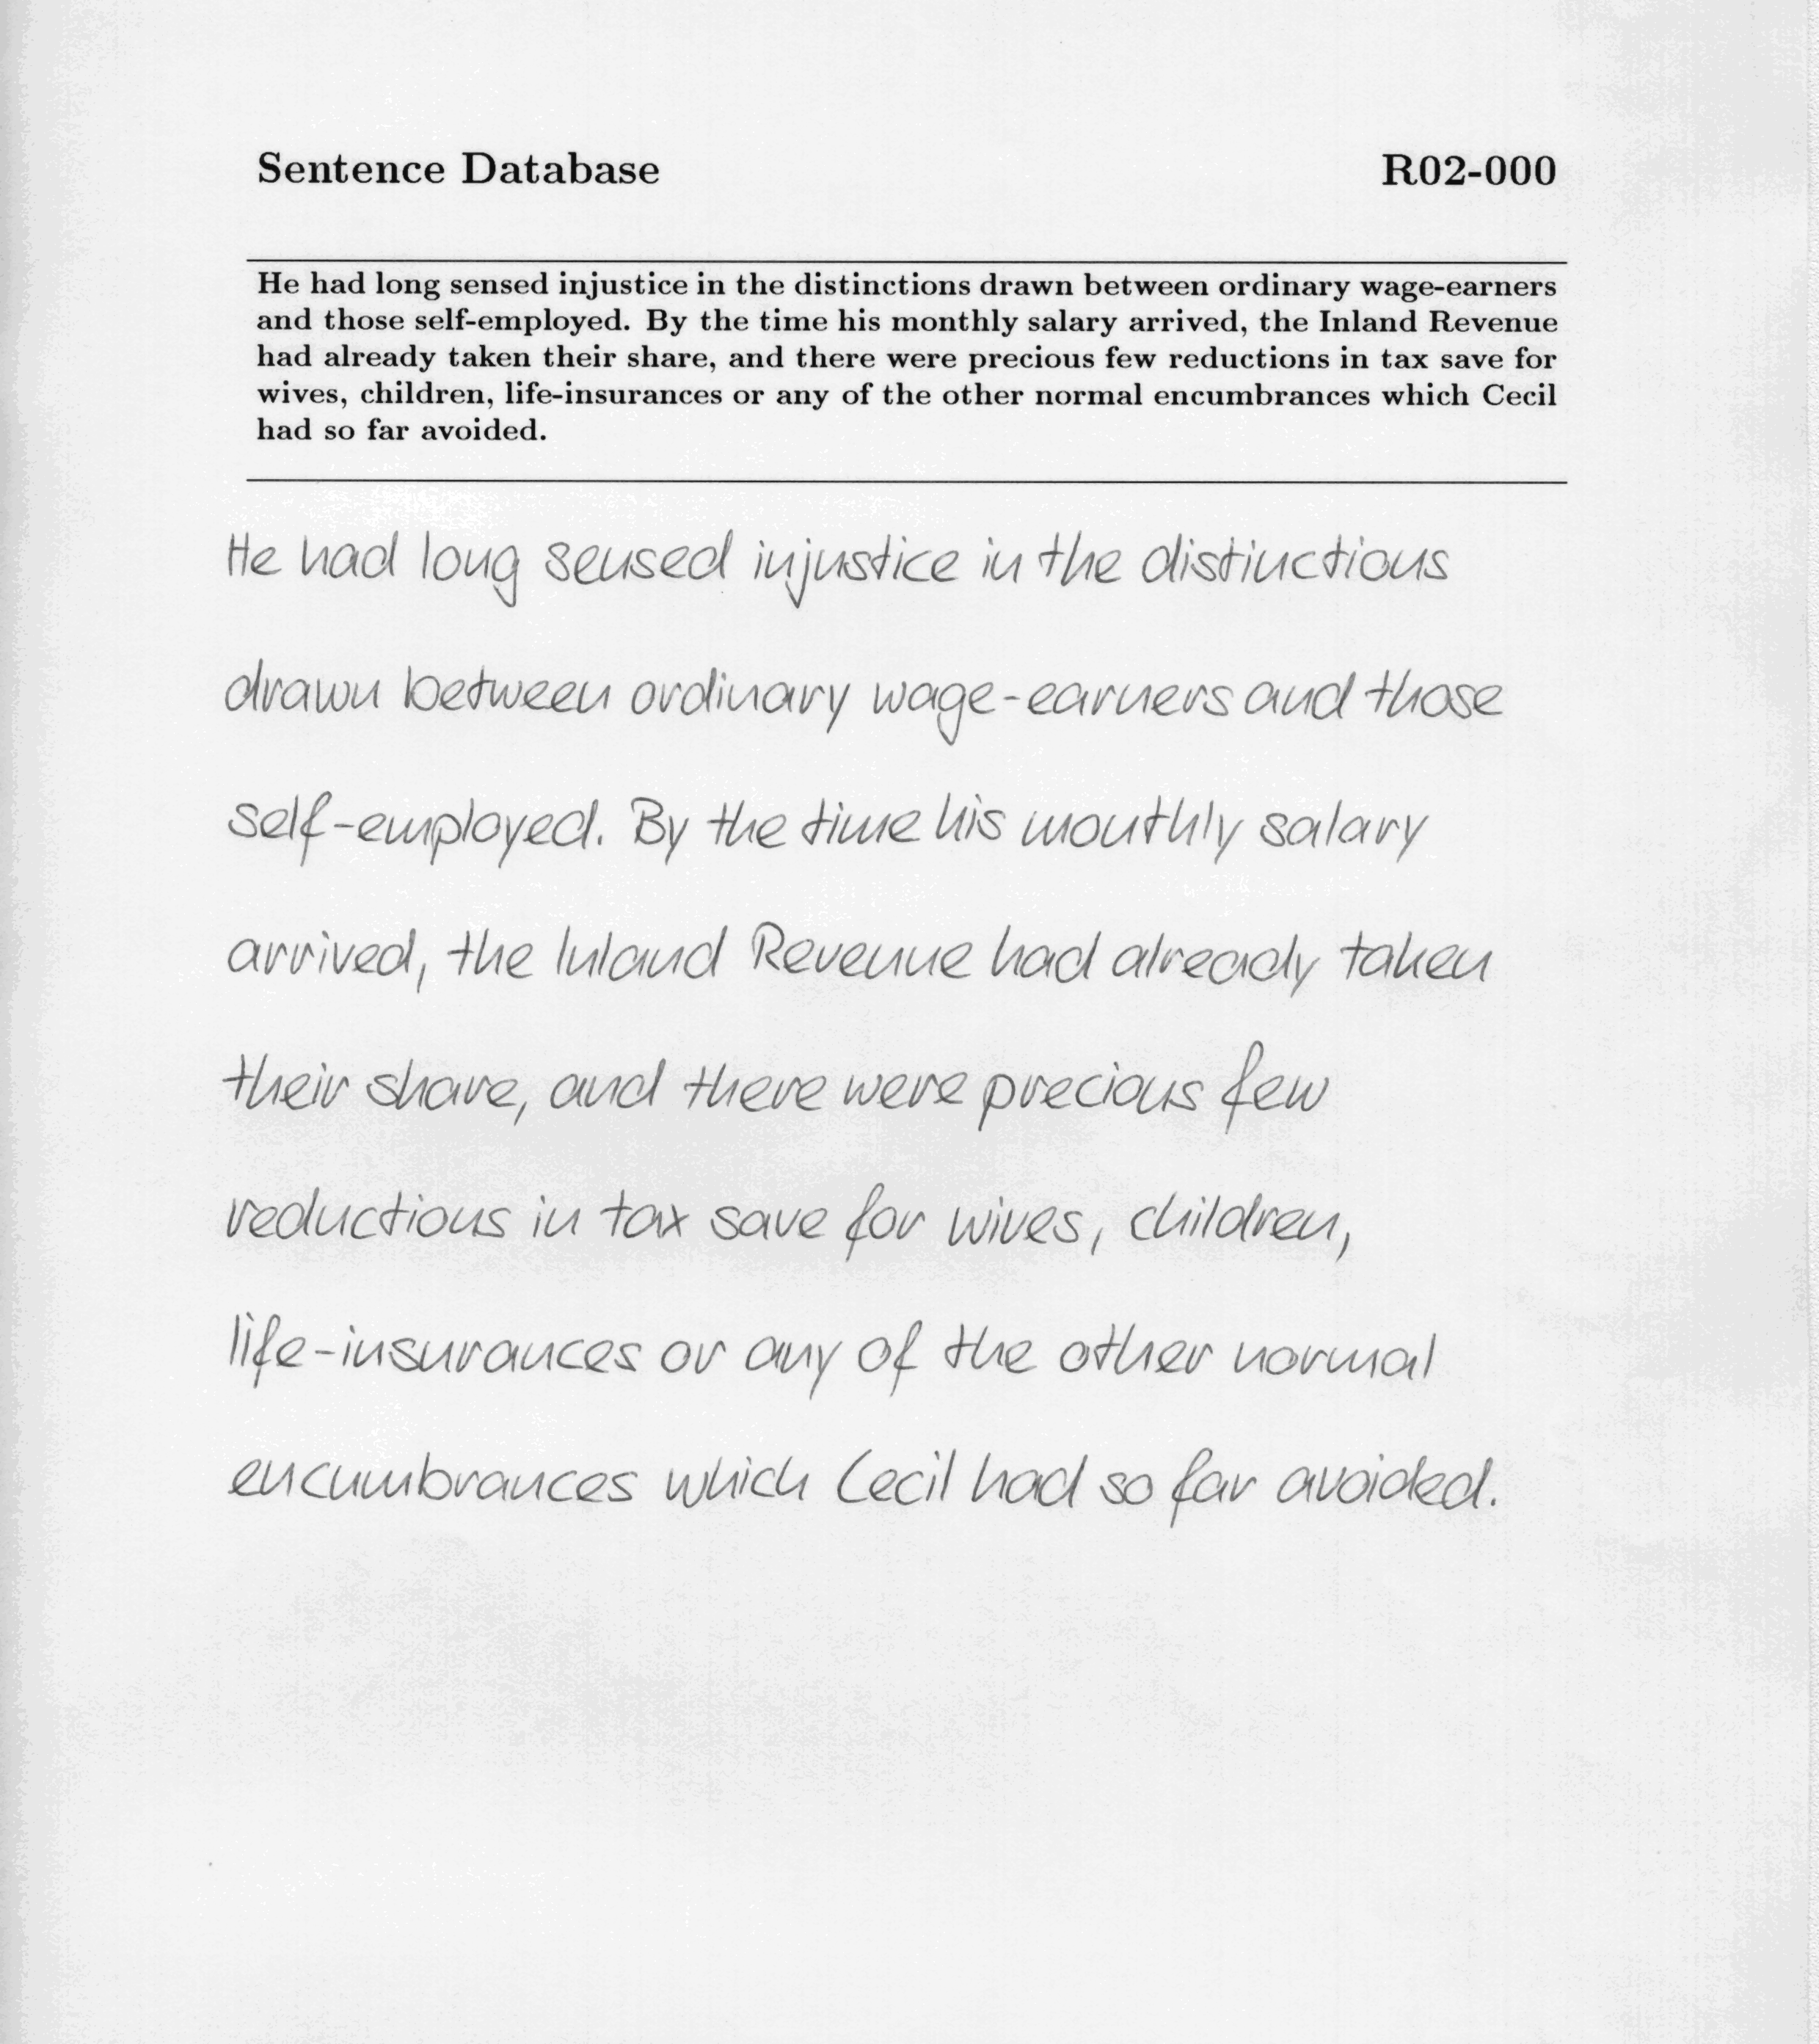 Sentence Database R02-000
He had long sensed injustice in the distinctions drawn between ordinary wage-earners
and those self-employed. By the time his monthly salary arrived, the Inland Revenue
had already taken their share, and there were precious few reductions in tax save for
wives, children, life-insurances or any of the other normal encumbrances which Cecil
had so far avoided.
He had long sensed injustice in the distinctions
drawn between ordinary wage-earners and those
self-employed. By the time his monthly salary
arrived, the Inland Revenue had already taken
their share, and there were precious few
reductions in tax save for wives, children,
life-insurances or any of the other normal
encumbrances which Cecil had so far avoided.